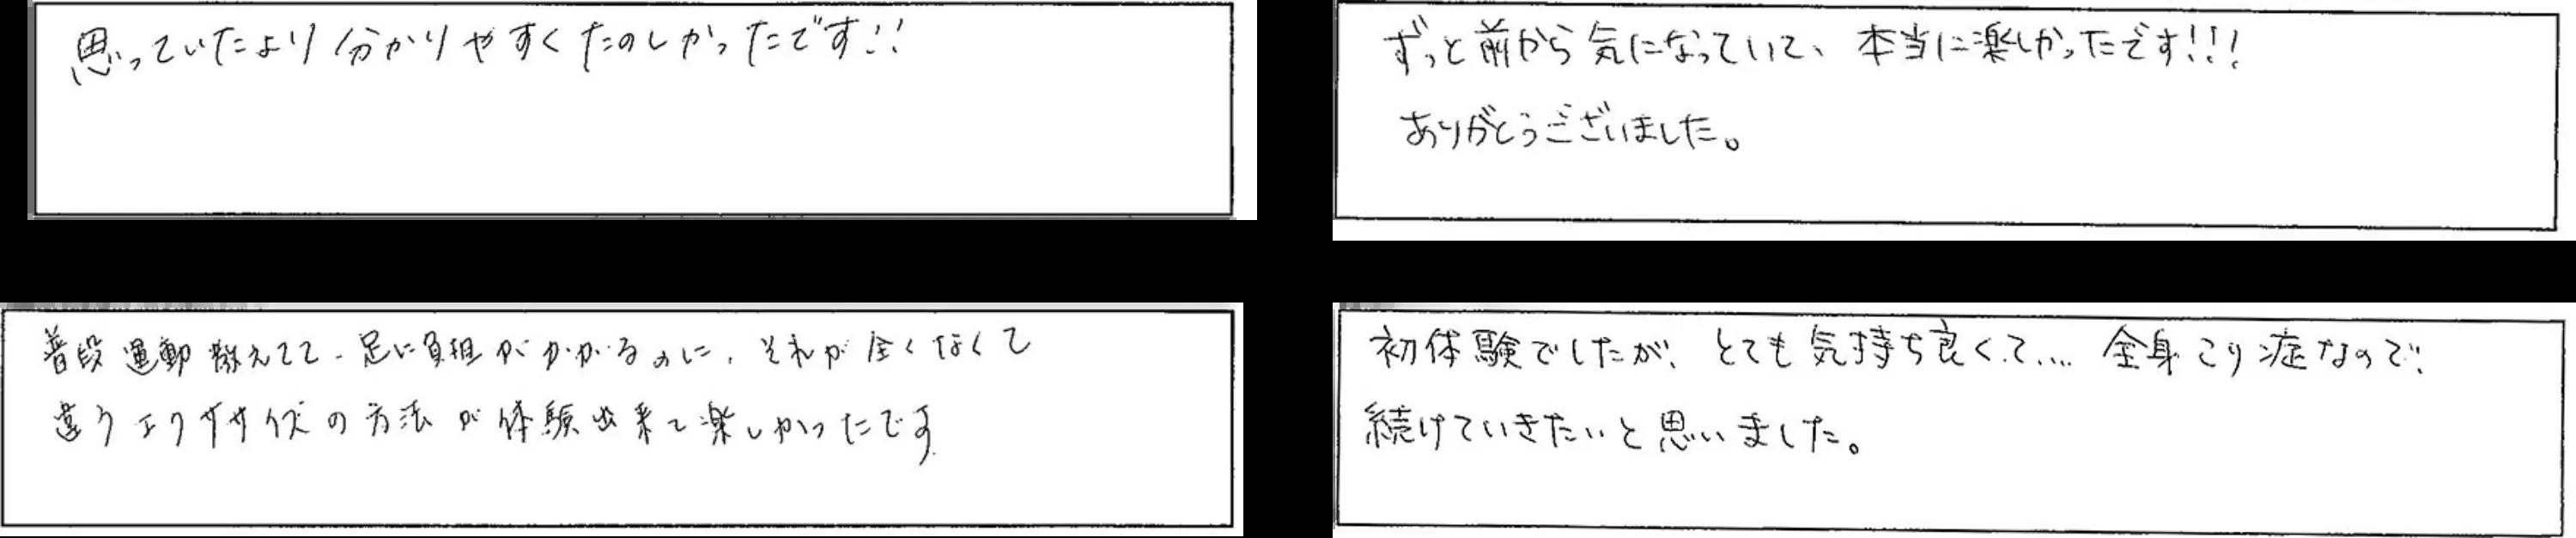 思っていたより分かりやすくたのしかったです!!
ずっと前から気になっていて、本当に楽しかったです!!!
ありがとうございました。
普段運動教えてて、足に負担がかかるのに、それが全くなくて
違うエクササイズの方法が体験出来て楽しかったです
初体験でしたが、とても気持ち良くて… 全身こり症なので、
続けていきたいと思いました。